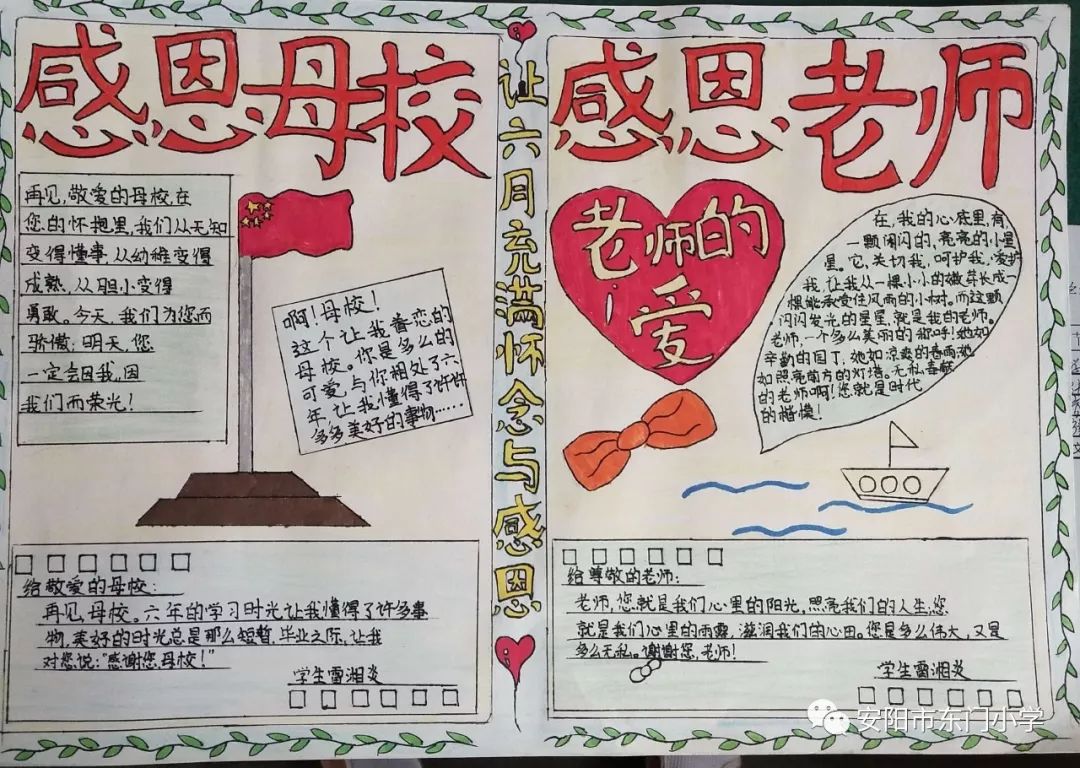 感恩母校
再见,敬爱的母校,在
您的怀抱里,我们从无知
变得懂事,从幼稚变得
成熟,从胆小变得
勇敢。今天,我们为您而
骄傲;明天,您
一定会因我,因
我们而荣光!
啊!母校!
这个让我眷恋的
母校。你是多么的
可爱,与你相处了六
年,让我懂得了许许
多多美好的事物……
给敬爱的母校:
再见,母校。六年的学习时光让我懂得了许多事
物,美好的时光总是那么短暂,毕业之际,让我
对您说:“感谢您,母校!”
学生雷湘炎
让六月充满怀念与感恩
感恩老师
老师的
爱
在,我的心底里,有
一颗闪闪的,亮亮的小星
星。它,关切我,呵护我,爱护
我,让我从一棵小小的嫩芽长成一
棵能承受住风雨的小树。而这颗
闪闪发光的星星,就是我的老师。
老师,一个多么美丽的称呼!她如
辛勤的园丁,她如凉爽的春雨,她
如照亮前方的灯塔。无私奉献
的老师啊!您就是时代
的楷模!
给尊敬的老师:
老师,您就是我们心里的阳光,照亮我们的人生,您
就是我们心里的雨露,滋润我们的心田。您是多么伟大,又是
多么无私。谢谢您,老师!
学生雷湘炎
安阳市东门小学